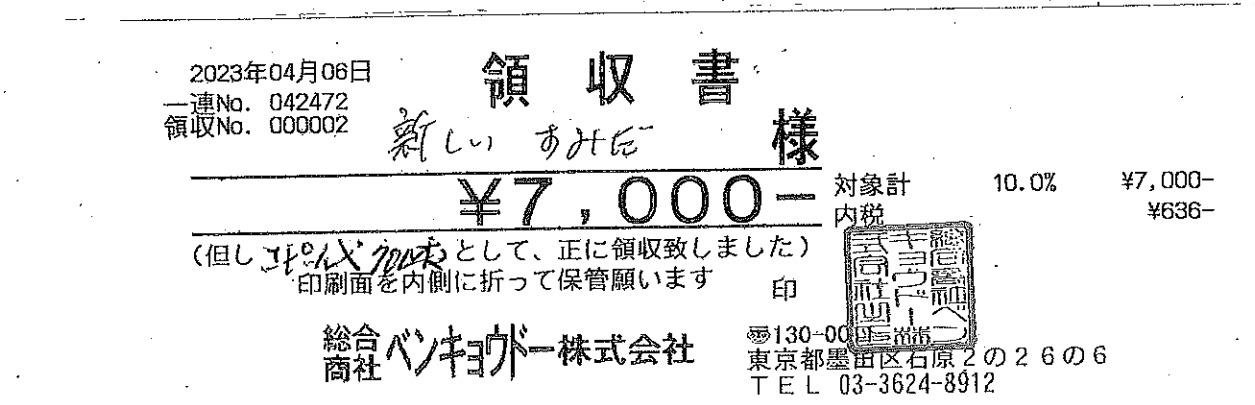 2023年04月06日
領収書
一連No. 042472
領収No. 000002
新しい すみだ 様
¥7,000-
対象計 10.0% ¥7,000-
内税 ¥636-
(但し として、正に領収致しました)
印刷面を内側に折って保管願います
印
総合商社 ベンキョウドー株式会社
〒130-00
東京都墨田区石原2の26の6
TEL 03-3624-8912